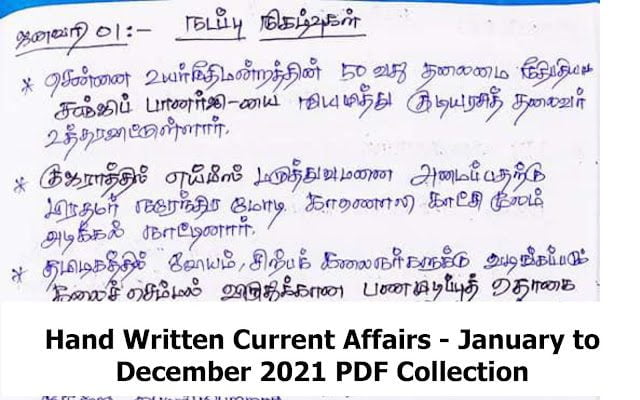 ஜனவரி 01:- நடப்பு நிகழ்வுகள்
* சென்னை உயர்நீதிமன்றத்தின் 50 வது தலைமை நீதிபதியாக
சஞ்ஜிப் பானர்ஜி-யை நியமித்து குடியரசித் தலைவர்
உத்தரவிட்டுள்ளார்.
* குஜராத்தில் எய்ம்ஸ் மருத்துவமனை அமைப்பதற்கு
பிரதமர் நரேந்திர மோடி காணொலி காட்சி மூலம்
அடிக்கல் நாட்டினார்.
* தமிழகத்தில் ஓவியம், சிற்பக் கலைஞர்களுக்கு வழங்கப்படும்
கலைச் செம்மல் விருதிக்கான பணமுடிப்புத் தொகை
Hand Written Current Affairs - January to
December 2021 PDF Collection